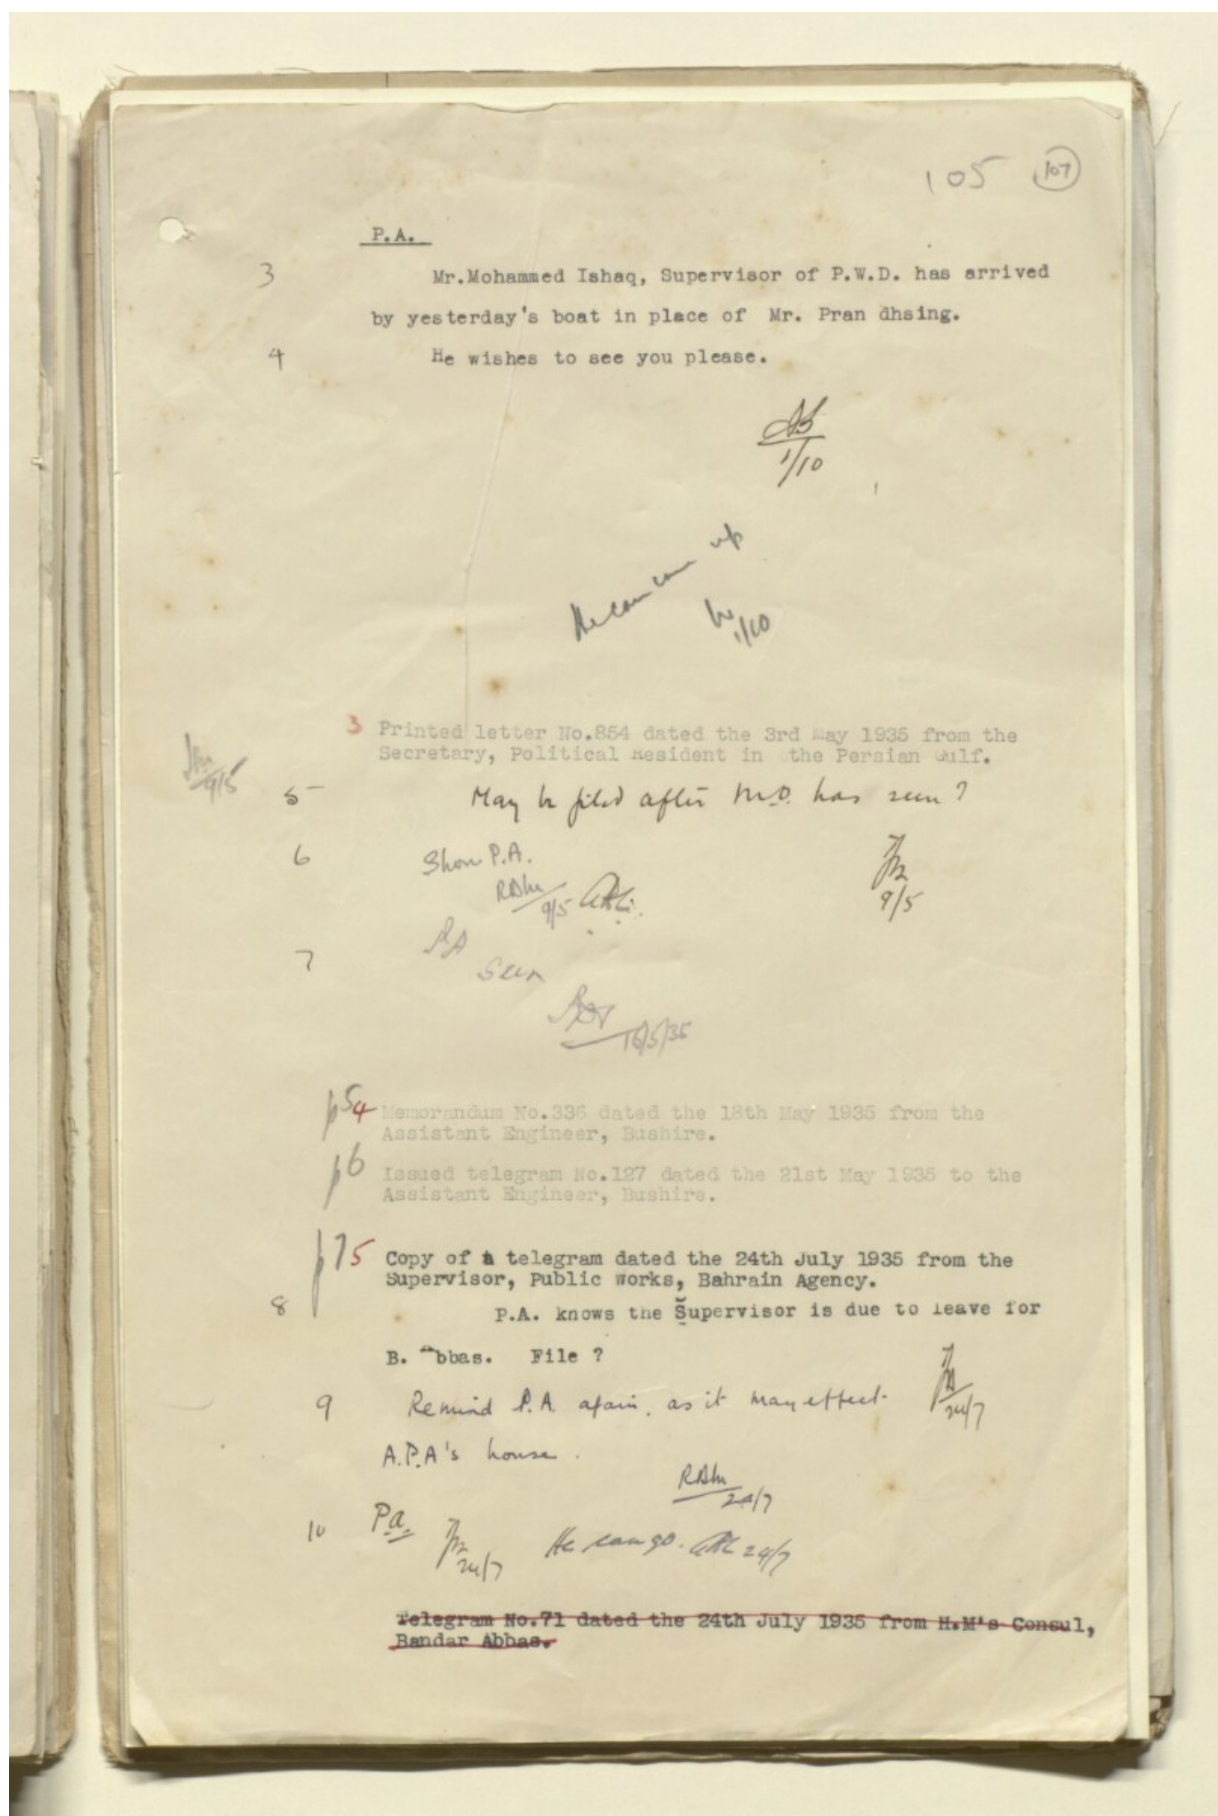 105 107
P.A.
3 Mr.Mohammed Ishaq, Supervisor of P.W.D. has arrived
by yesterday's boat in place of Mr. Pran dhsing.
4 He wishes to see you please.
1/10
He can come up
1/10
3 Printed letter No.854 dated the 3rd May 1935 from the
Secretary, Political Resident in the Persian Gulf.
9/5
5 May be filed after M.O. has seen?
6 Show P.A.
9/5
9/5
7
Seen
16/5/35
p5 4 Memorandum No.336 dated the 18th May 1935 from the
Assistant Engineer, Bushire.
p6 Issued telegram No.127 dated the 21st May 1935 to the
Assistant Engineer, Bushire.
p7 5 Copy of a telegram dated the 24th July 1935 from the
Supervisor, Public works, Bahrain Agency.
8 P.A. knows the Supervisor is due to leave for
B. Abbas. File ?
24/7
9 Remind P.A. again, as it may effect
A.P.A's house.
24/7
10 P.a.
24/7 He can go. 24/7
Telegram No.71 dated the 24th July 1935 from H.M's Consul,
Bandar Abbas.